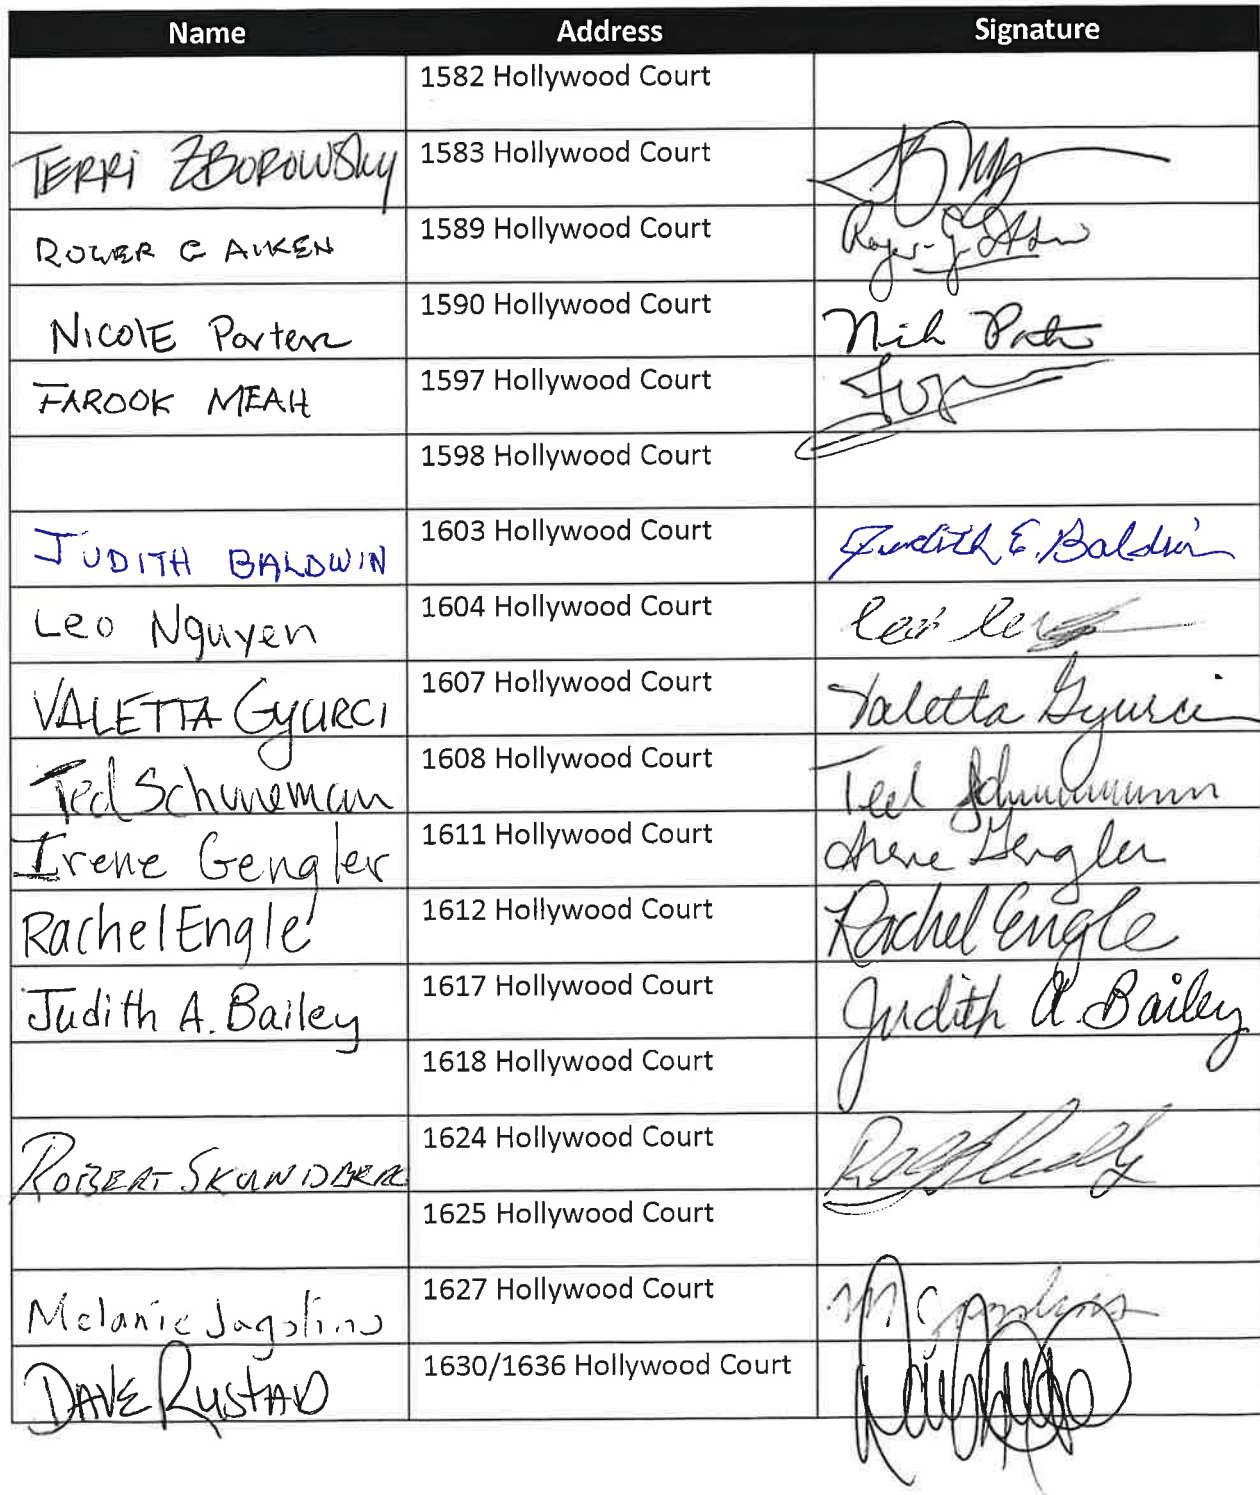 Name Address Signature
1582 Hollywood Court
TERRI ZBOROWSKY 1583 Hollywood Court
ROGER G AIKEN 1589 Hollywood Court
NICOLE Porter 1590 Hollywood Court
FAROOK MEAH 1597 Hollywood Court
1598 Hollywood Court
JUDITH BALDWIN 1603 Hollywood Court Judith E. Baldwin
Leo Nguyen 1604 Hollywood Court
VALETTA GYURCI 1607 Hollywood Court Valetta Gyurci
Ted Schuneman 1608 Hollywood Court Ted
Irene Gengler 1611 Hollywood Court Irene Gengler
Rachel Engle 1612 Hollywood Court Rachel Engle
Judith A. Bailey 1617 Hollywood Court Judith A. Bailey
1618 Hollywood Court
ROBERT SKUNDBERG 1624 Hollywood Court
1625 Hollywood Court
Melanie Jagolino 1627 Hollywood Court
DAVE RUSTAD 1630/1636 Hollywood Court